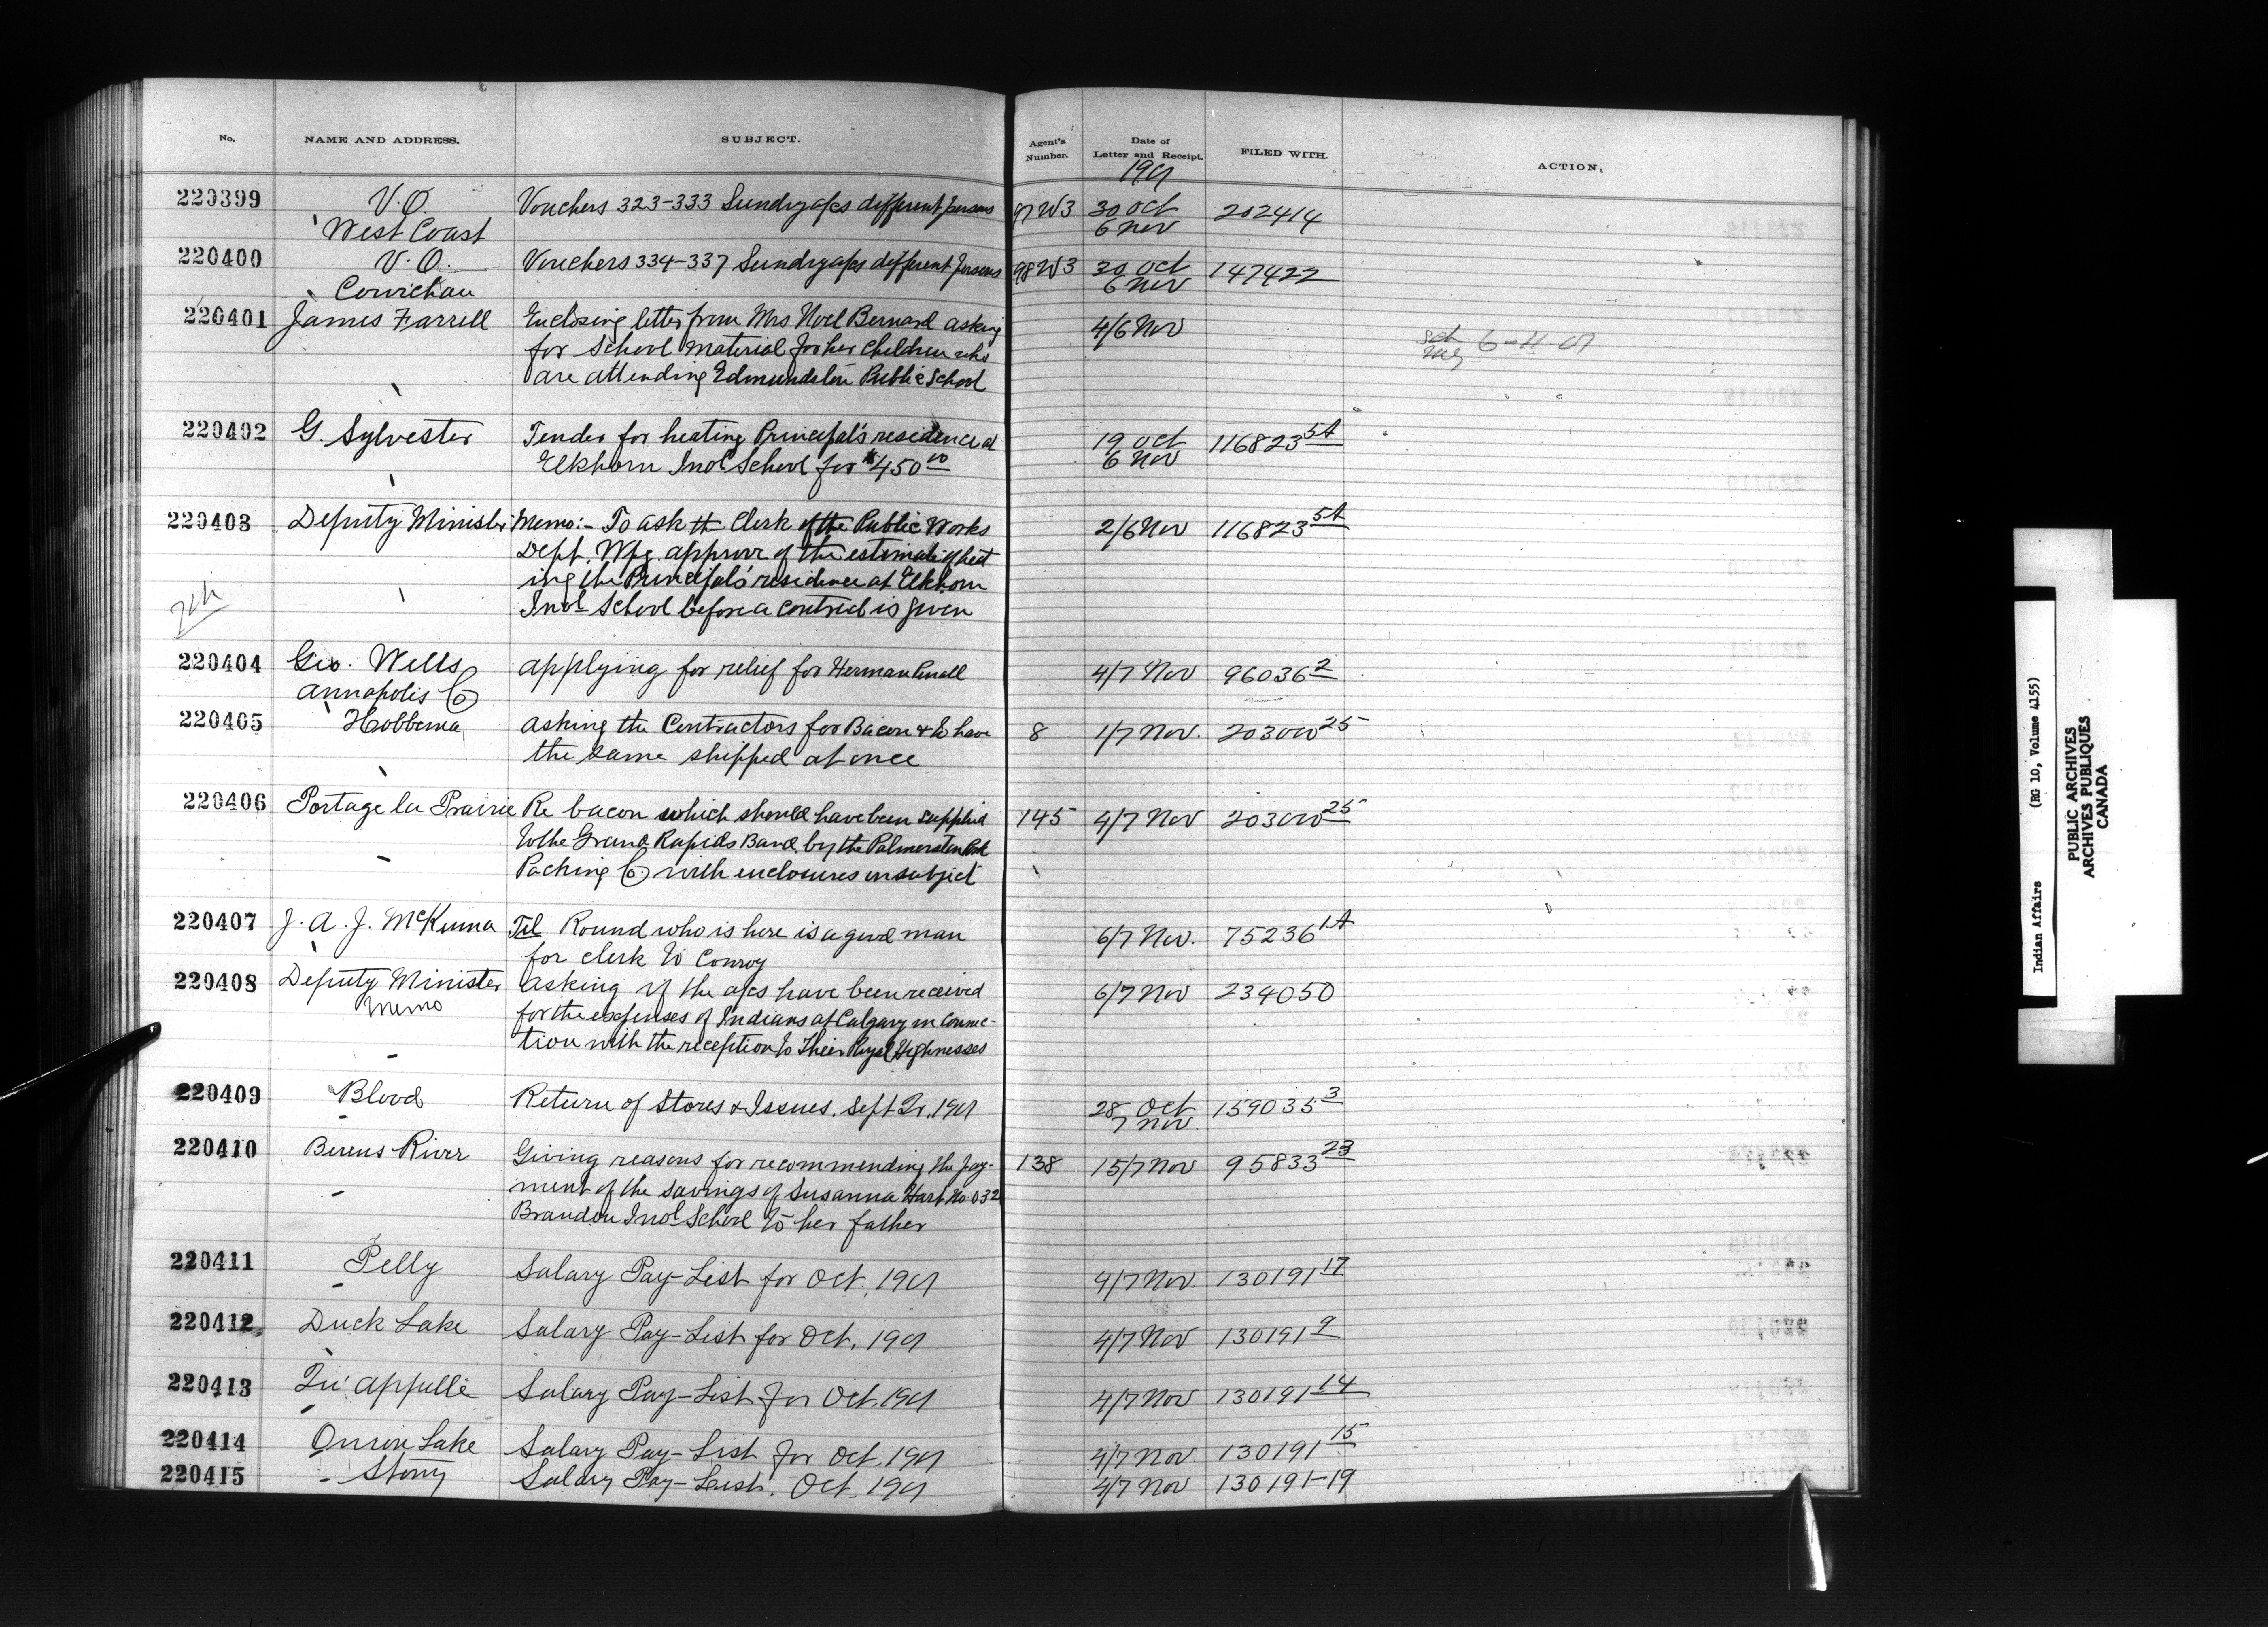 No. NAME AND ADDRESS. SUBJECT. Agent's Number. Date of Letter and Receipt. FILED WITH. ACTION.
1901
220399 V.O. Vouchers 323-333 Sundry a/cs different persons 97 W3 30 Oct 202414
West Coast 6 Nov
220400 V.O. Vouchers 334-337 Sundry a/cs different persons 98 W3 30 Oct 147422
Cowichan 6 Nov
220401 James Farrell Enclosing letter from Mrs Noel Bernard asking 4/6 Nov
for School Material for her children who 6-11-01
are attending Edmundston Public School
220402 G. Sylvester Tender for heating Principal's residence at 19 Oct 116823 5A
Elkhorn Indl School for $450 00 6 Nov
220403 Deputy Minister Memo:- To ask the Clerk of the Public Works 2/6 Nov 116823 5A
Dept. Wpg. approve of the estimate of heat
ing the Principal's residence at Elkhorn
Indl School before a contract is given
220404 Geo. Wells applying for relief for Herman 4/7 Nov 96036 2
Annapolis Co
220405 Hobbema asking the Contractors for Bacon & to have 8 1/7 Nov. 203000 25
the same shipped at once
220406 Portage la Prairie Re bacon which should have been supplied 145 4/7 Nov 203000 25
to the Grand Rapids Band by the Palmerston Pork
Packing Co. with enclosures on subject
220407 J. A. J. McKenna Tel Round who is here is a good man 6/7 Nov. 75236 1A
for clerk to Conroy
220408 Deputy Minister asking if the a/cs have been received 6/7 Nov 234050
Memo for the expenses of Indians at Calgary in connec-
tion with the reception to Their Royal Highnesses
220409 Blood Return of Stores & Issues. Sept Qr. 1901 28 Oct 159035 3
7 Nov.
220410 Berens River Giving reasons for recommending the pay- 138 15/7 Nov 95833 23
ment of the savings of Susanna Hart No. 032
Brandon Indl School to her father
220411 Pelly Salary Pay-List for Oct. 1901 4/7 Nov. 130191 17
220412 Duck Lake Salary Pay-List for Oct. 1901 4/7 Nov 130191 9
220413 Qu'appelle Salary Pay-List for Oct. 1901 4/7 Nov 130191 14
220414 Onion Lake Salary Pay-List for Oct. 1901 4/7 Nov 130191 15
220415 Stony Salary Pay-List. Oct. 1901 4/7 Nov 130191-19
Indian Affairs (RG 10, Volume 4155)
PUBLIC ARCHIVES
ARCHIVES PUBLIQUES
CANADA